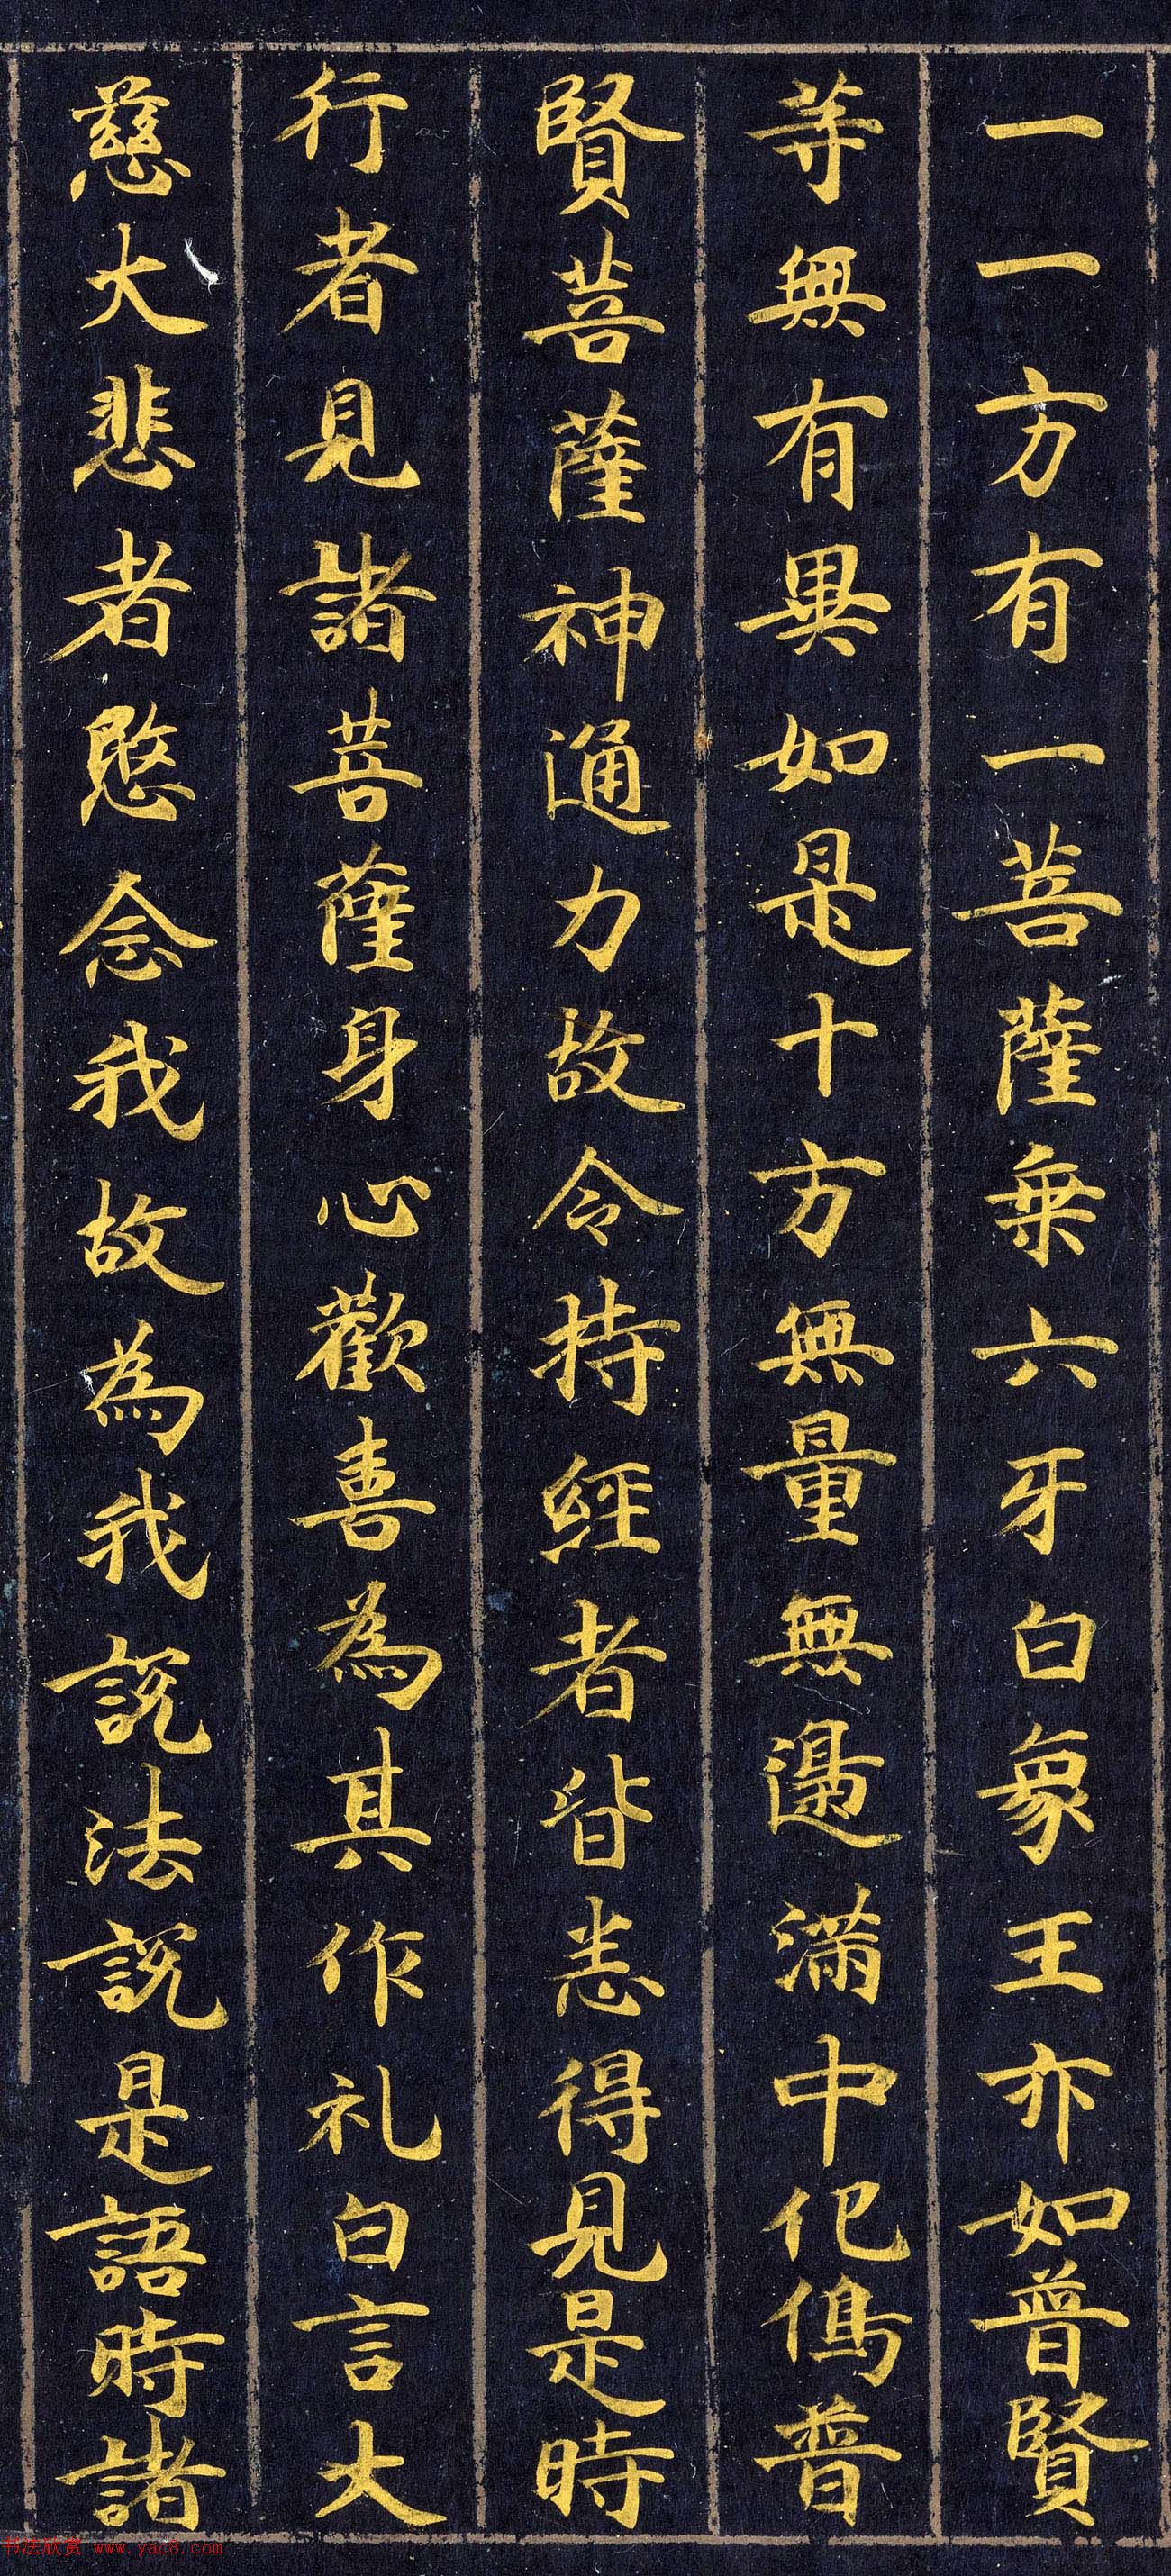 一一方有一菩薩乗六牙白象王亦如普賢
等無有異如是十方無量無邊滿中化像普
賢菩薩神通力故令持經者皆悉得見是時
行者見諸菩薩身心歡喜為其作礼白言大
慈大悲者愍念我故為我說法說是語時諸
书法欣赏 www.yac8.com